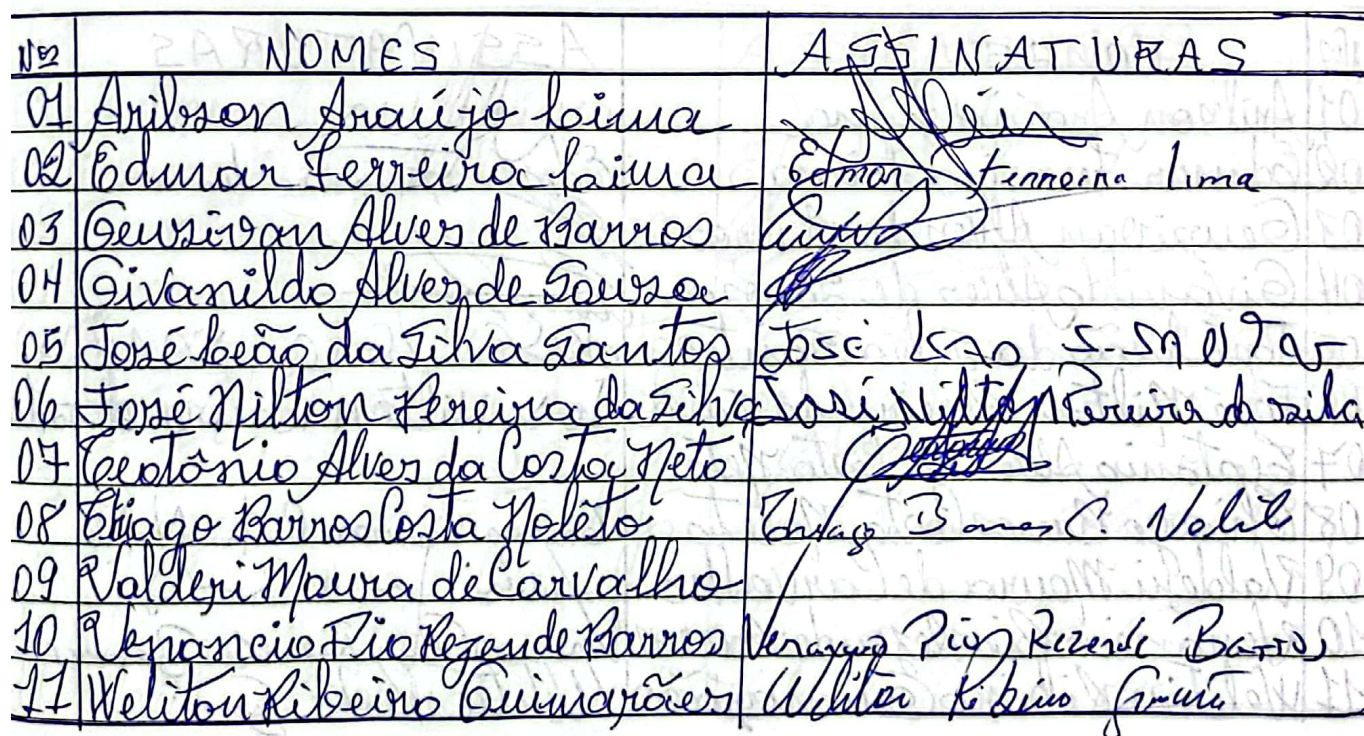 Nos NOMES ASSINATURAS
01 Arilson Araújo Lima
02 Edmar Ferreira Lima Edmar Ferreira Lima
03 Geusivan Alves de Barros
04 Givanildo Alves de Sousa
05 José Leão da Silva Santos José Leão S. Santos
06 José Nilton Pereira da Silva José Nilton Pereira da Silva
07 Teotônio Alves da Costa Neto
08 Thiago Barros Costa Nolêto Thiago Barros C. Nolêto
09 Valderi Moura de Carvalho
10 Venancio Pio Rezende Barros Venancio Pio Rezende Barros
11 Weliton Ribeiro Guimarães Weliton Ribeiro